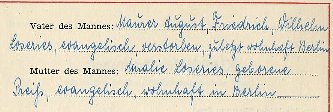 Vater des Mannes: Maurer August, Friedrich, Wilhelm
Loseries, evangelisch verstorben, zuletzt wohnhaft Berlin
Mutter des Mannes: Amalie Loseries, geborene
Preiß, evangelisch wohnhaft in Berlin